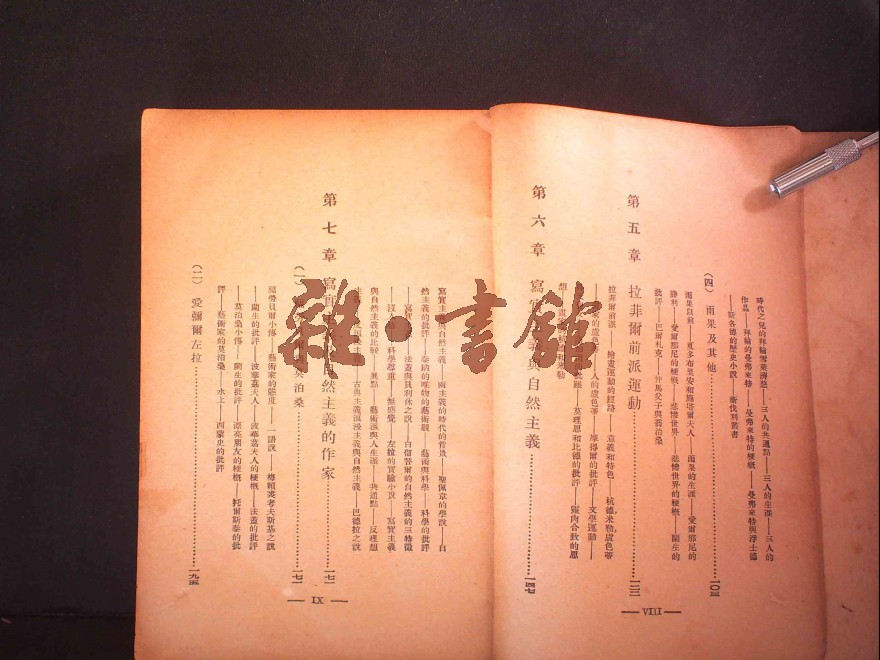 時代之兒的拜輪雪萊濟慈——三人的共通點——三人的生涯——三人的
作品——拜輪的曼弗來特——曼弗來特的梗概——曼弗來特與浮士德
——斯各德的歷史小說——新伐利叢書
(四) 雨果及其他 一〇三
雨果以前——夏多布里安和斯塔爾夫人——雨果的生涯——愛爾那尼的
勝利——愛爾那尼的梗概——悲慘世界——悲慘世界的梗概——蘭生的
批評——巴爾札克——仲馬父子與喬治桑
第五章 拉菲爾前派運動 一三三
拉菲爾前派——繪畫運動的經路——意義和特色——杭德米勒盧色蒂
的盧色蒂——人的盧色蒂——摩得爾的批評——文學運動——
莫理思和比德的批評——靈肉合致的思
想
第六章 寫實 義與自然主義 一四七
寫實主義與自然主義——兩主義的時代的背景——聖佩韋的學說——自
然主義的批評——泰納的唯物的藝術觀——藝術與科學——科學的批評
——寫實 法蓋與貝利休之說——自倍菩爾的自然主義的三特徵
科學尊重——無感覺——左拉的實驗小說——寫實主義
與自然主義的比較——異點——藝術派與人生派——共通點——反理想
主義 古典主義浪漫主義與自然主義——巴德拉之說
第七章 寫實 自然主義的作家 一七一
(一) 莫泊桑 一七一
福勞貝爾小傳——藝術家的態度——一語說——梅賴裘考夫斯基之說
——蘭生的批評——波華荔夫人——波華荔夫人的梗概——法蓋的批評
——莫泊桑小傳——蘭生的批評——漂亮朋友的梗概——托爾斯泰的批
評——藝術家的莫泊桑——水上——西蒙史的批評
(二) 愛彌爾左拉 一九五
VIII
IX
雜·書館